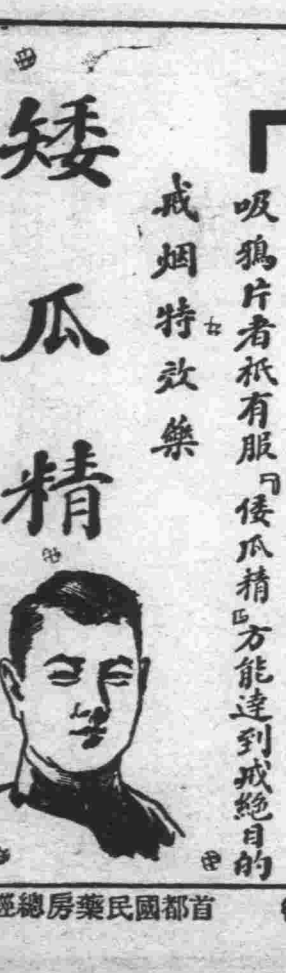 吸鴉片者祇有服『倭瓜精』方能達到戒絕目的
戒烟特效藥
矮瓜精
首都國民藥房總經